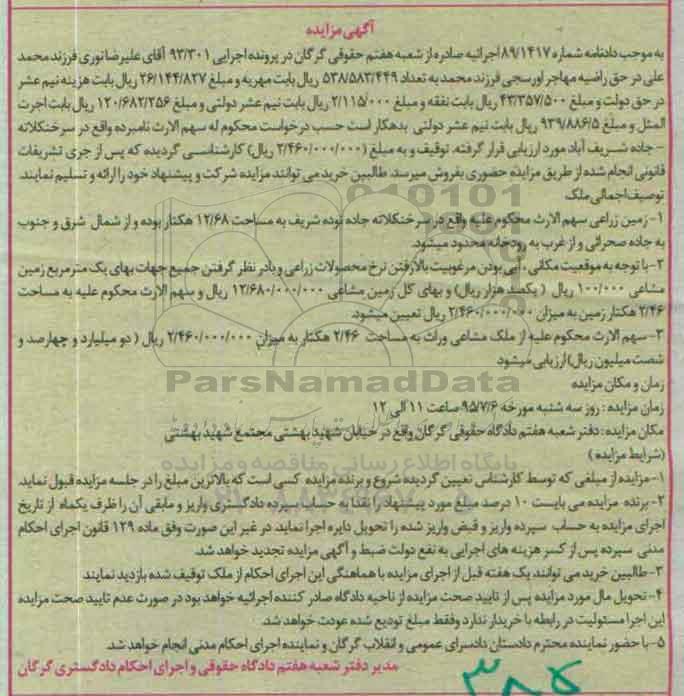 آگهی مزایده
به موجب دادنامه شماره ۸۹/۱۴۱۷ اجرائیه صادره از شعبه هفتم حقوقی گرگان در پرونده اجرایی ۹۳/۳۰۱ آقای علیرضا نوری فرزند محمد
علی در حق راضیه مهاجر اورسجی فرزند محمد به تعداد ۵۳۸/۵۸۲/۴۴۹ ریال بابت مهریه و مبلغ ۲۶/۱۴۴/۸۲۷ ریال بابت هزینه نیم عشر
در حق دولت و مبلغ ۴۳/۳۵۷/۵۰۰ ریال بابت نفقه و مبلغ ۲/۱۱۵/۰۰۰ ریال بابت نیم عشر دولتی و مبلغ ۱۲۰/۶۸۲/۲۵۶ ریال بابت اجرت
المثل و مبلغ ۹۳۹/۸۸۶/۵ ریال بابت نیم عشر دولتی بدهکار است حسب درخواست محکوم له سهم الارث نامبرده واقع در سرخنکلاته
- جاده شریف آباد مورد ارزیابی قرار گرفته، توقیف و به مبلغ (۲/۴۶۰/۰۰۰/۰۰۰ ریال) کارشناسی گردیده که پس از جری تشریفات
قانونی انجام شده از طریق مزایده حضوری بفروش میرسد. طالبین خرید می توانند مزایده شرکت و پیشنهاد خود را ارائه و تسلیم نمایند.
توصیف اجمالی ملک
۱- زمین زراعی سهم الارث محکوم علیه واقع در سرخنکلاته جاده توده شریف به مساحت ۱۲/۶۸ هکتار بوده و از شمال شرق و جنوب
به جاده صحرائی و از غرب به رودخانه محدود میشود.
۲- با توجه به موقعیت مکانی، آبی بودن مرغوبیت بالا رفتن نرخ محصولات زراعی و بادر نظر گرفتن جمیع جهات بهای یک مترمربع زمین
مشاعی ۱۰۰/۰۰۰ ریال ( یکصد هزار ریال) و بهای کل زمین مشاعی ۱۲/۶۸۰/۰۰۰/۰۰۰ ریال و سهم الارث محکوم علیه به مساحت
۲/۴۶ هکتار زمین به میزان ۲/۴۶۰/۰۰۰/۰۰۰ ریال تعیین میشود.
۳- سهم الارث محکوم علیه از ملک مشاعی وراث به مساحت ۲/۴۶ هکتار به میزان ۲/۴۶۰/۰۰۰/۰۰۰ ریال ( دو میلیارد و چهارصد و
شصت میلیون ریال) ارزیابی میشود
ParsNamadData
زمان و مکان مزایده
زمان مزایده : روز سه شنبه مورخه ۹۵/۷/۶ ساعت ۱۱ الی ۱۲
مکان مزایده : دفتر شعبه هفتم دادگاه حقوقی گرگان واقع در خیابان شهید بهشتی مجتمع شهید بهشتی
پایگاه اطلاع رسانی مناقصه و مزایده
(شرایط مزایده)
۱- مزایده از مبلغی که توسط کارشناس تعیین گردیده شروع و برنده مزایده کسی است که بالاترین مبلغ را در جلسه مزایده قبول نماید.
۲- برنده مزایده می بایست ۱۰ درصد مبلغ مورد پیشنهاد را نقدا به حساب سپرده دادگستری واریز و مابقی آن را ظرف یکماه از تاریخ
اجرای مزایده به حساب سپرده واریز و قبض واریز شده را تحویل دایره اجرا نماید. در غیر این صورت وفق ماده ۱۲۹ قانون اجرای احکام
مدنی سپرده پس از کسر هزینه های اجرایی به نفع دولت ضبط و آگهی مزایده تجدید خواهد شد.
۳- طالبین خرید می توانند یک هفته قبل از اجرای مزایده با هماهنگی این اجرای احکام از ملک توقیف شده بازدید نمایند
۴- تحویل مال مورد مزایده پس از تایید صحت مزایده از ناحیه دادگاه صادر کننده اجرائیه خواهد بود در صورت عدم تایید صحت مزایده
این اجرا مسئولیت در رابطه با خریدار ندارد و فقط مبلغ تودیع شده عودت خواهد شد.
۵- با حضور نماینده محترم دادستان دادسرای عمومی و انقلاب گرگان و نماینده اجرای احکام مدنی انجام خواهد شد.
مدیر دفتر شعبه هفتم دادگاه حقوقی و اجرای احکام دادگستری گرگان